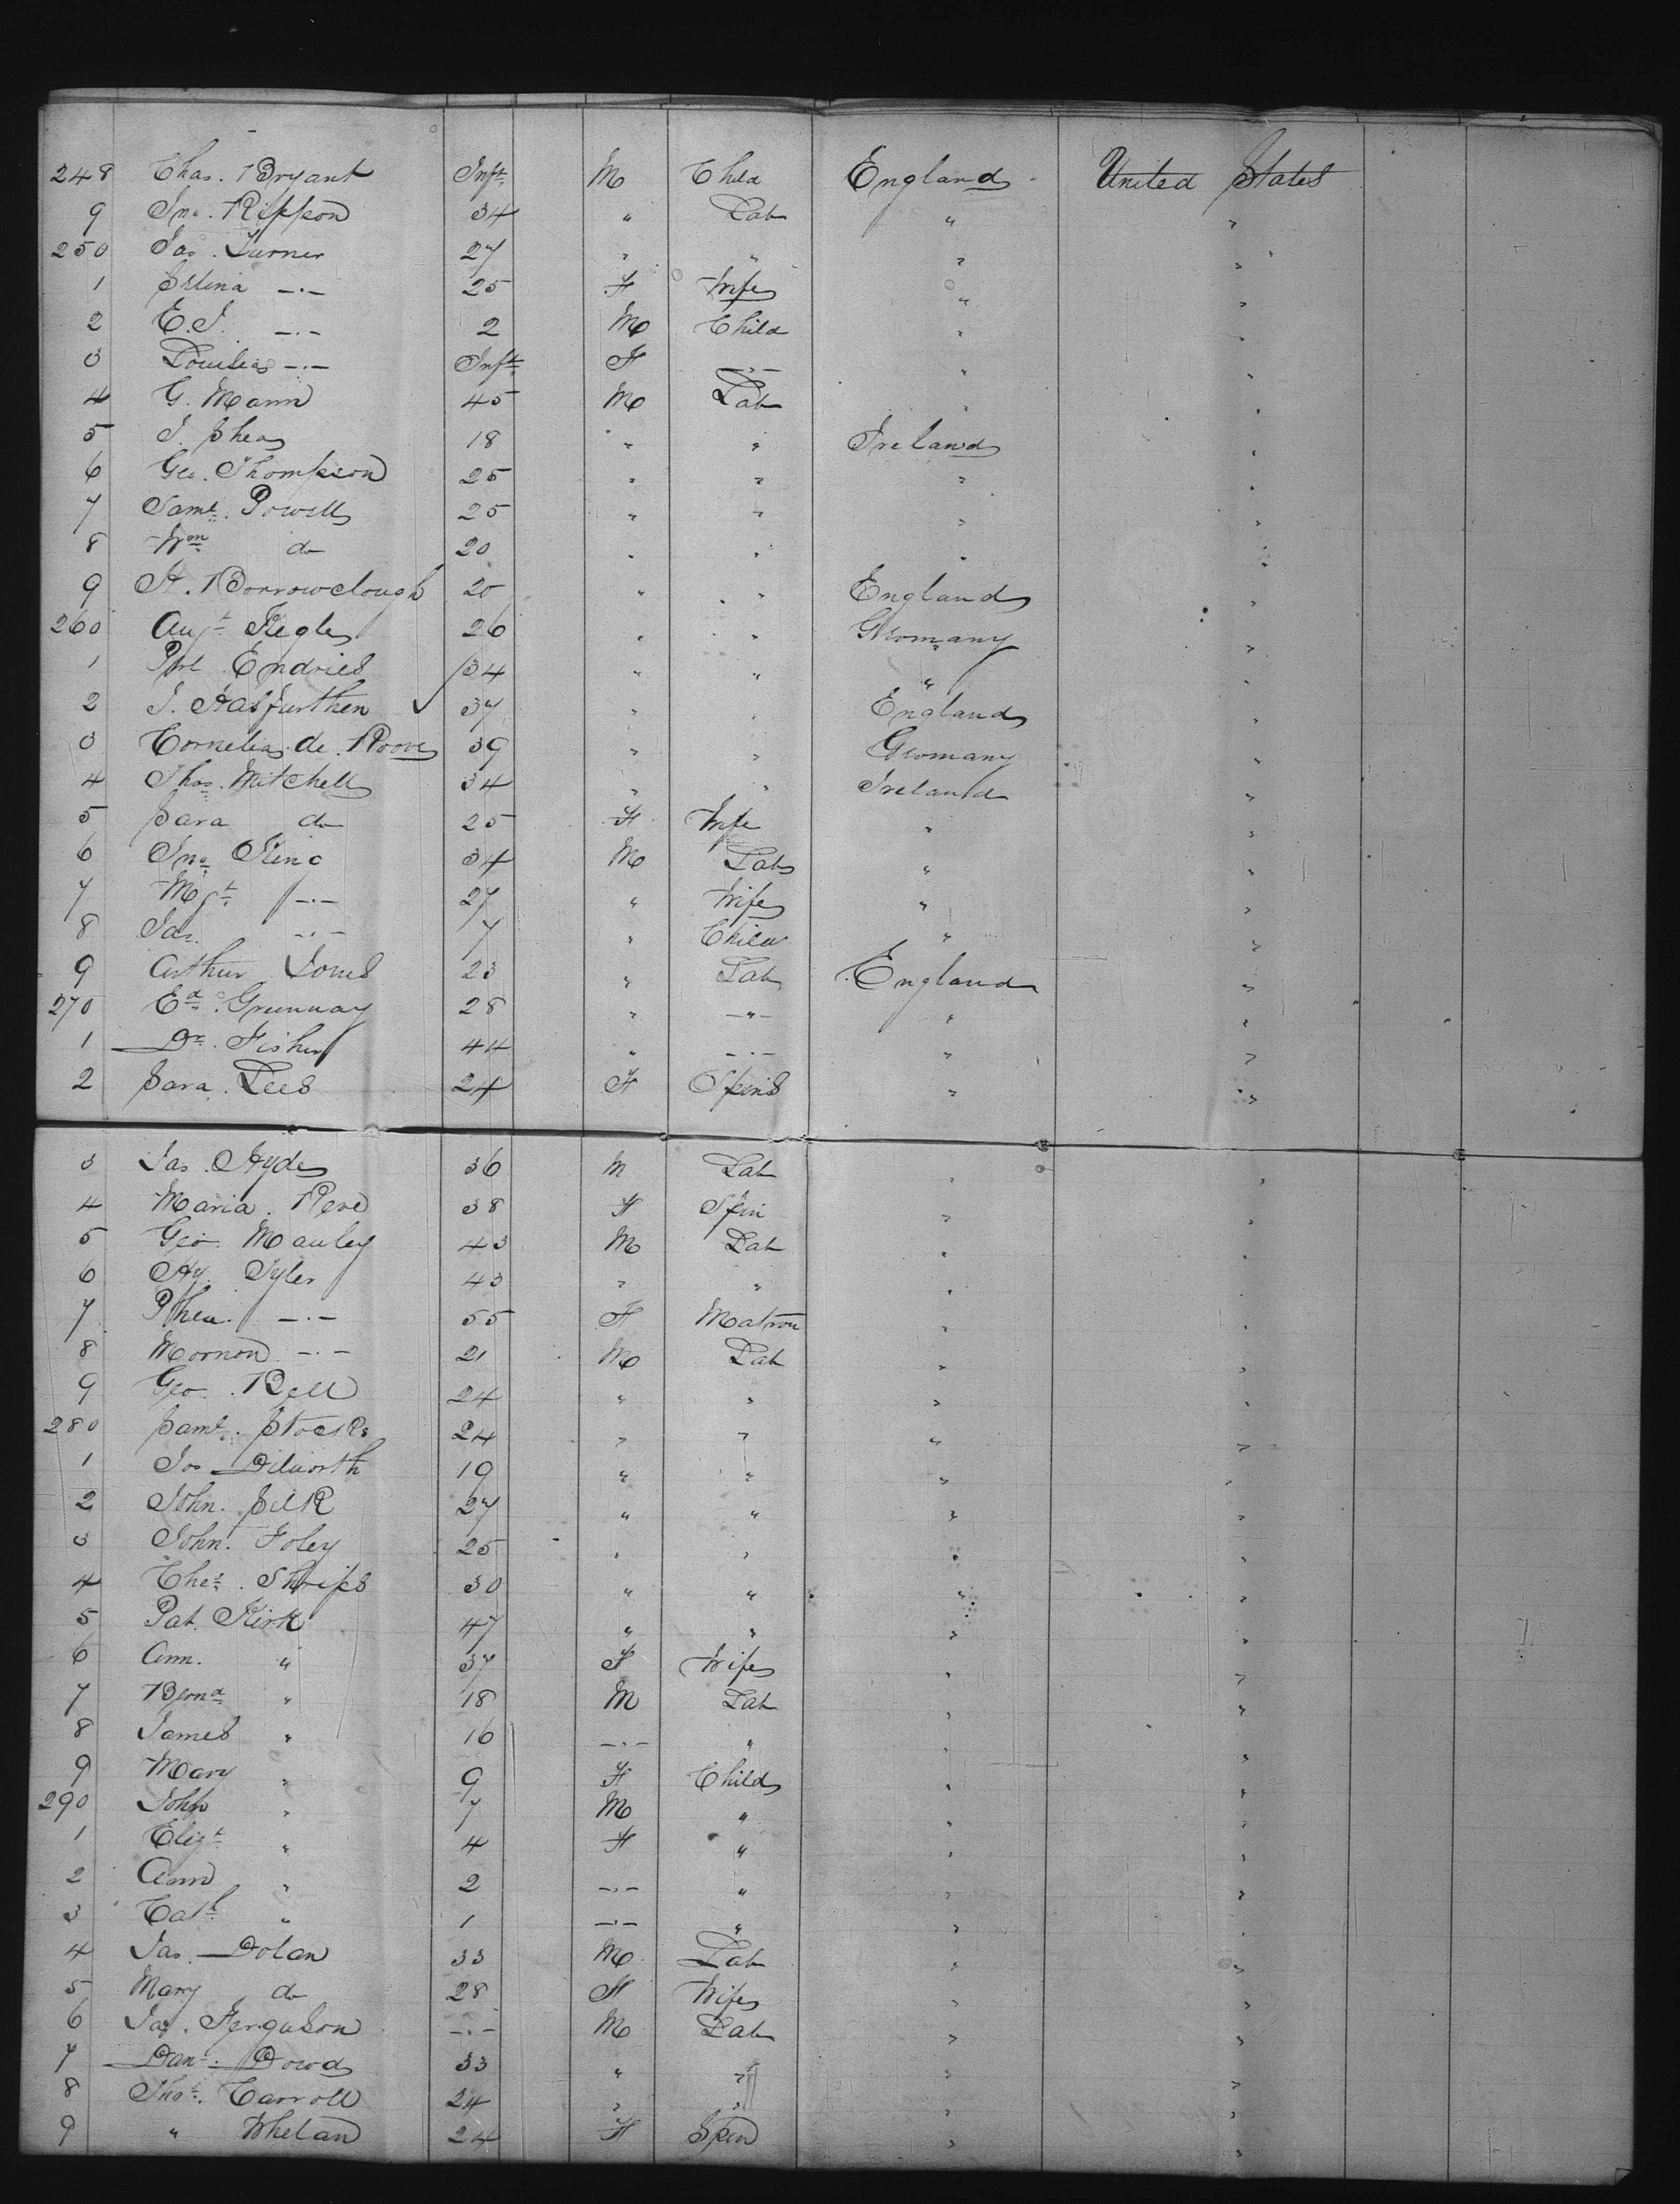 248 Chas. Bryant Inft. M Child England United States
9 Jno. Rippon 34 " Lab " "
250 Jas. Turner 27 " " " "
1 Selina —·— 25 F Wife " "
2 E.J. —·— 2 M Child " "
3 Louisa —·— Inft. F —·— " "
4 G. Mann 45 M Lab " "
5 J. Shea 18 " " Ireland "
6 Geo. Thompson 25 " " " "
7 Saml. Powell 25 " " " "
8 Wm do 20 " " " "
9 H. Borrowclough 20 " " England "
260 Augt 26 " " Germany "
1 Endries 34 " " " "
2 J. 37 " " England "
3 Cornelias de 39 " " Germany "
4 Thos. Mitchell 34 " " Ireland "
5 Sara do 25 F Wife " "
6 Jno King 34 M Lab " "
7 Mgt —·— 27 " Wife " "
8 Jas. —·— 7 " Child " "
9 Arthur Jones 23 " Lab England "
270 Ed. Greenway 28 " —"— " "
1 Dr. Fisher 44 " —·— " "
2 Sara Lees 24 F Spins " "
3 Jas. Hyde 36 M Lab " "
4 Maria 38 F Spin " "
5 Geo. Manley 43 M Lab " "
6 Hy. Tyler 43 " " " "
7 —·— 55 F Matron " "
8 —·— 21 M Lab " "
9 Geo. Bell 24 " " " "
280 Saml. Stocks 24 " " " "
1 Jos Dilworth 19 " " " "
2 John. Silk 27 " " " "
3 John. Foley 25 " " " "
4 30 " " " "
5 Pat. Kirk 47 " " " "
6 Ann. " 37 F Wife " "
7 Bernd " 18 M Lab " "
8 James " 16 —·— " " "
9 Mary " 9 F Child " "
290 John " 7 M " " "
1 Elizt " 4 F " " "
2 Ann " 2 —·— " " "
3 Cath " 1 —·— " " "
4 Jas. Dolan 33 M Lab " "
5 Mary do 28 F Wife " "
6 Jas. Ferguson —·— M Lab " "
7 Danl. Dowd 33 " " " "
8 Thos. Carroll 24 " " " "
9 " Whelan 24 F Spin " "